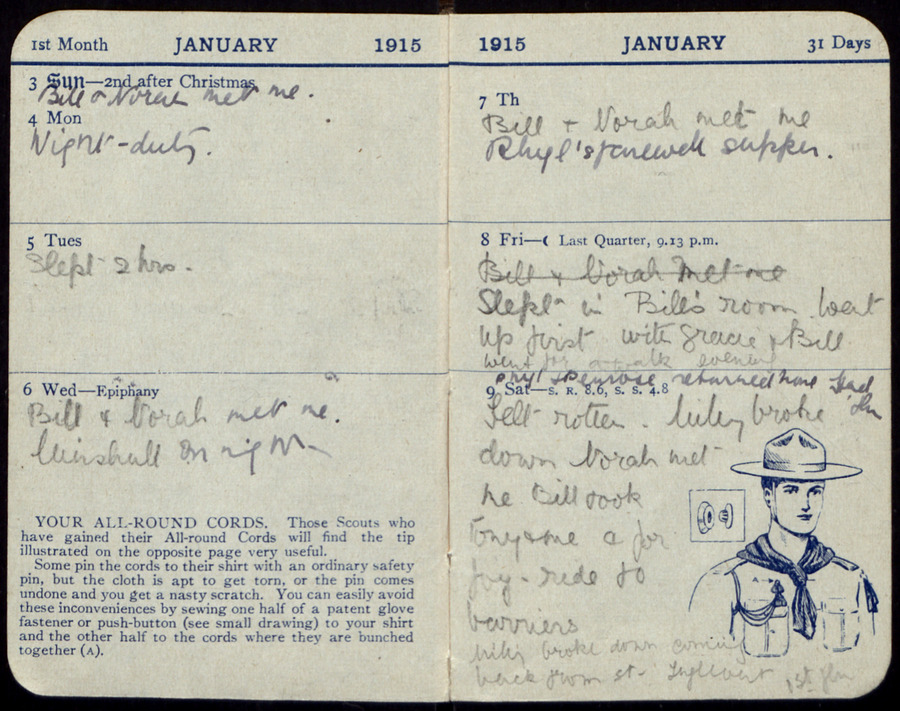 1st Month JANUARY 1915
3 Sun—2nd after Christmas
Bill & Norah met me.
4 Mon
Night-duty.
5 Tues
Slept 2 hrs.
6 Wed—Epiphany
Bill & Norah met me.
Minshall on night
YOUR ALL-ROUND CORDS. Those Scouts who
have gained their All-round Cords will find the tip
illustrated on the opposite page very useful.
Some pin the cords to their shirt with an ordinary safety
pin, but the cloth is apt to get torn, or the pin comes
undone and you get a nasty scratch. You can easily avoid
these inconveniences by sewing one half of a patent glove
fastener or push-button (see small drawing) to your shirt
and the other half to the cords where they are bunched
together (A).
1915 JANUARY 31 Days
7 Th
Bill + Norah met me
Rhyl's farewell supper.
8 Fri—☾ Last Quarter, 9.13 p.m.
Bill & Norah met me
Slept in Bill's room. Went
up first with Gracie & Bill
went for a walk evening
returned home
9 Sat—S. R. 8.6, S. S. 4.8
Felt rotten. broke
down Norah met
me Bill took
Tony & me a for
joy-ride to
barriers
broke down coming
back from St.
A